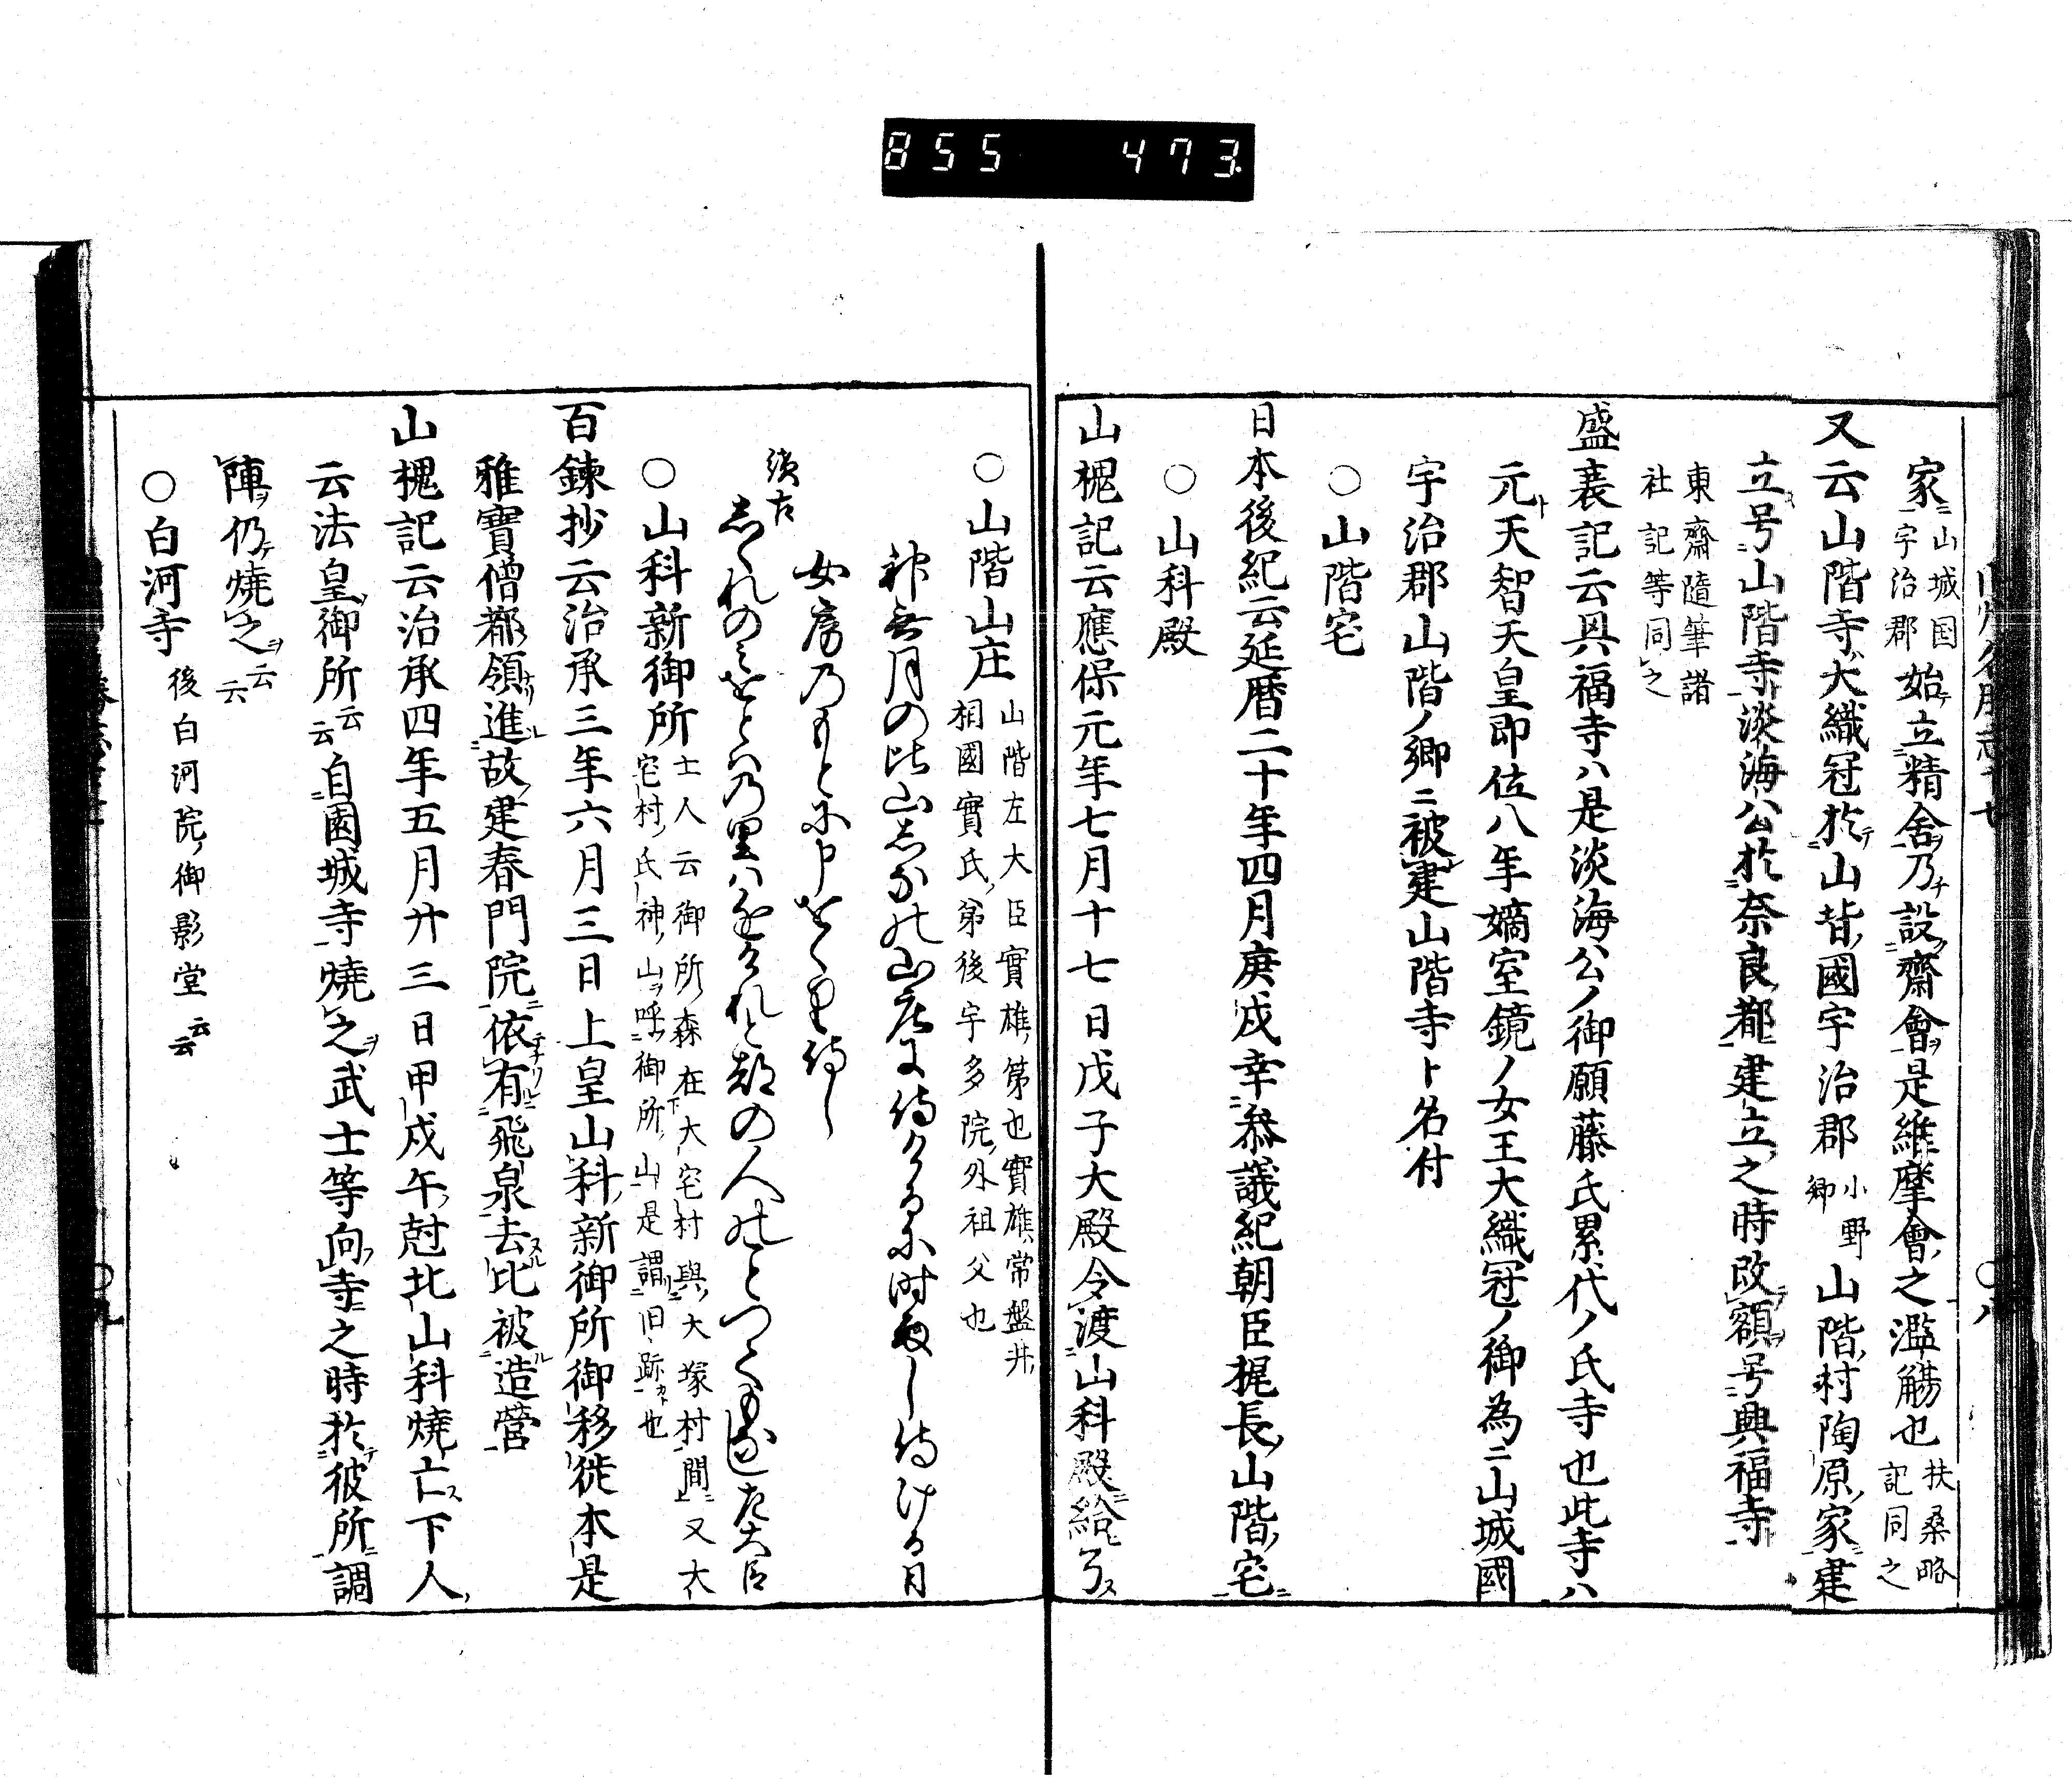 855 473
家ニ山城国宇治郡始テ立ニ精舎ヲ乃チ設ニ齋會ヲ是維摩會ノ之濫觴也扶桑略記同之
又云山階寺ハ大織冠於テ山背ノ國宇治郡小野郷山階ノ村陶原ノ家ニ建
立ス号ニ山階寺ト淡海公於ニ奈良ノ都ニ建立ノ之時改テ額ヲ号ニ興福寺
東齋隨筆諸社記等同之
盛衰記云興福寺ハ是淡海公ノ御願藤氏累代ノ氏寺也此寺ハ
元ト天智天皇即位八年嫡室鏡ノ女王大織冠ノ御為ニ山城國
宇治郡山階ノ郷ニ被建山階寺ト名付
○山階宅
日本後紀云延暦二十年四月庚戌幸ニ参議紀朝臣梶長ノ山階ノ宅ニ
○山科殿
山槐記云應保元年七月十七日戊子大殿令渡山科殿ニ給了ス
○山階山庄山階左大臣實雄ノ第也實雄常盤井ノ相國實氏ノ弟後宇多院ノ外祖父也
神無月の比山しなの山庄に侍ける に時雨し侍ける日
女房のもとに申をくり侍し
續古
しくれの をとハの里ハ ちかけれと都の人の ことつても 左大臣
○山科新御所士人云御所ノ森在大宅村與大塚村間又大宅村ノ氏神ノ山ヲ呼御所ノ山是謂旧跡カ也
百錬抄云治承三年六月三日上皇山科ノ新御所御移徙本是
雅實僧都ノ領進故建春門院ニ依有飛泉去比被造營
山槐記云治承四年五月廿三日甲戌午ノ尅北山科燒亡ス下人ノ
云法皇ノ御所云云自園城寺燒之ヲ武士等向フ寺ニ之時於テ彼所ニ調
陣ヲ仍テ燒之ヲ云云
○白河寺後白河院ノ御影堂云云